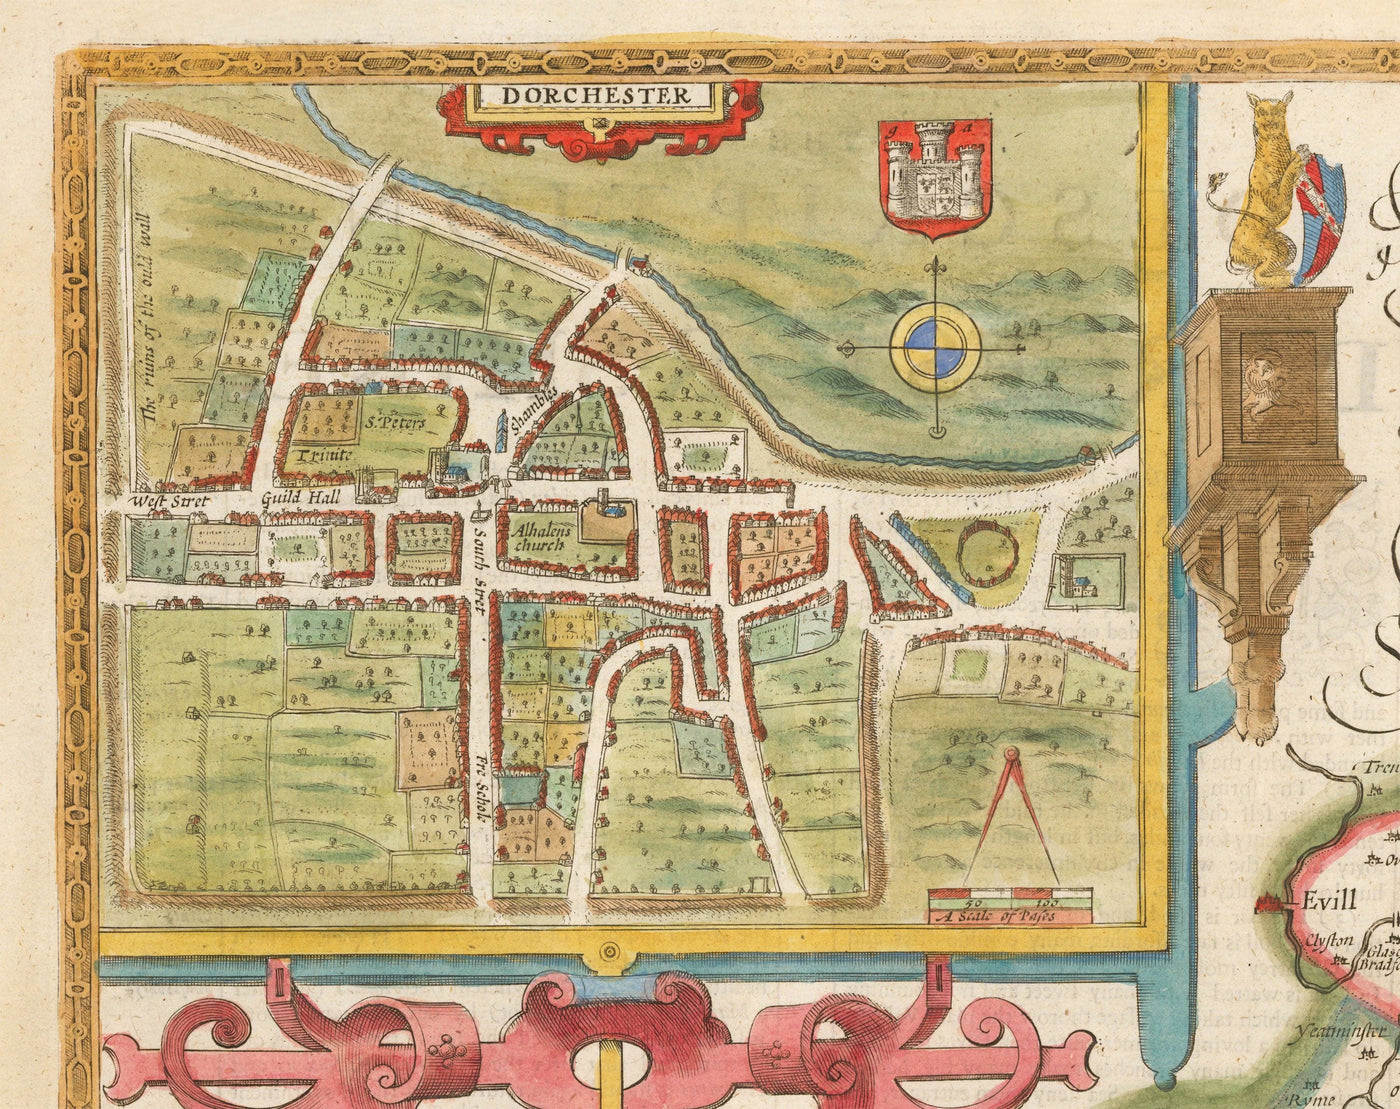 DORCHESTER
g a
The ruins of the ould wall
S. Peters
Trinite
Shambles
West Stret
Guild Hall
Alhalens
church
South Stret
Fre Schole
50 100
A Scale of Pases
Evill
Clyston
Yeatminster
Ryme